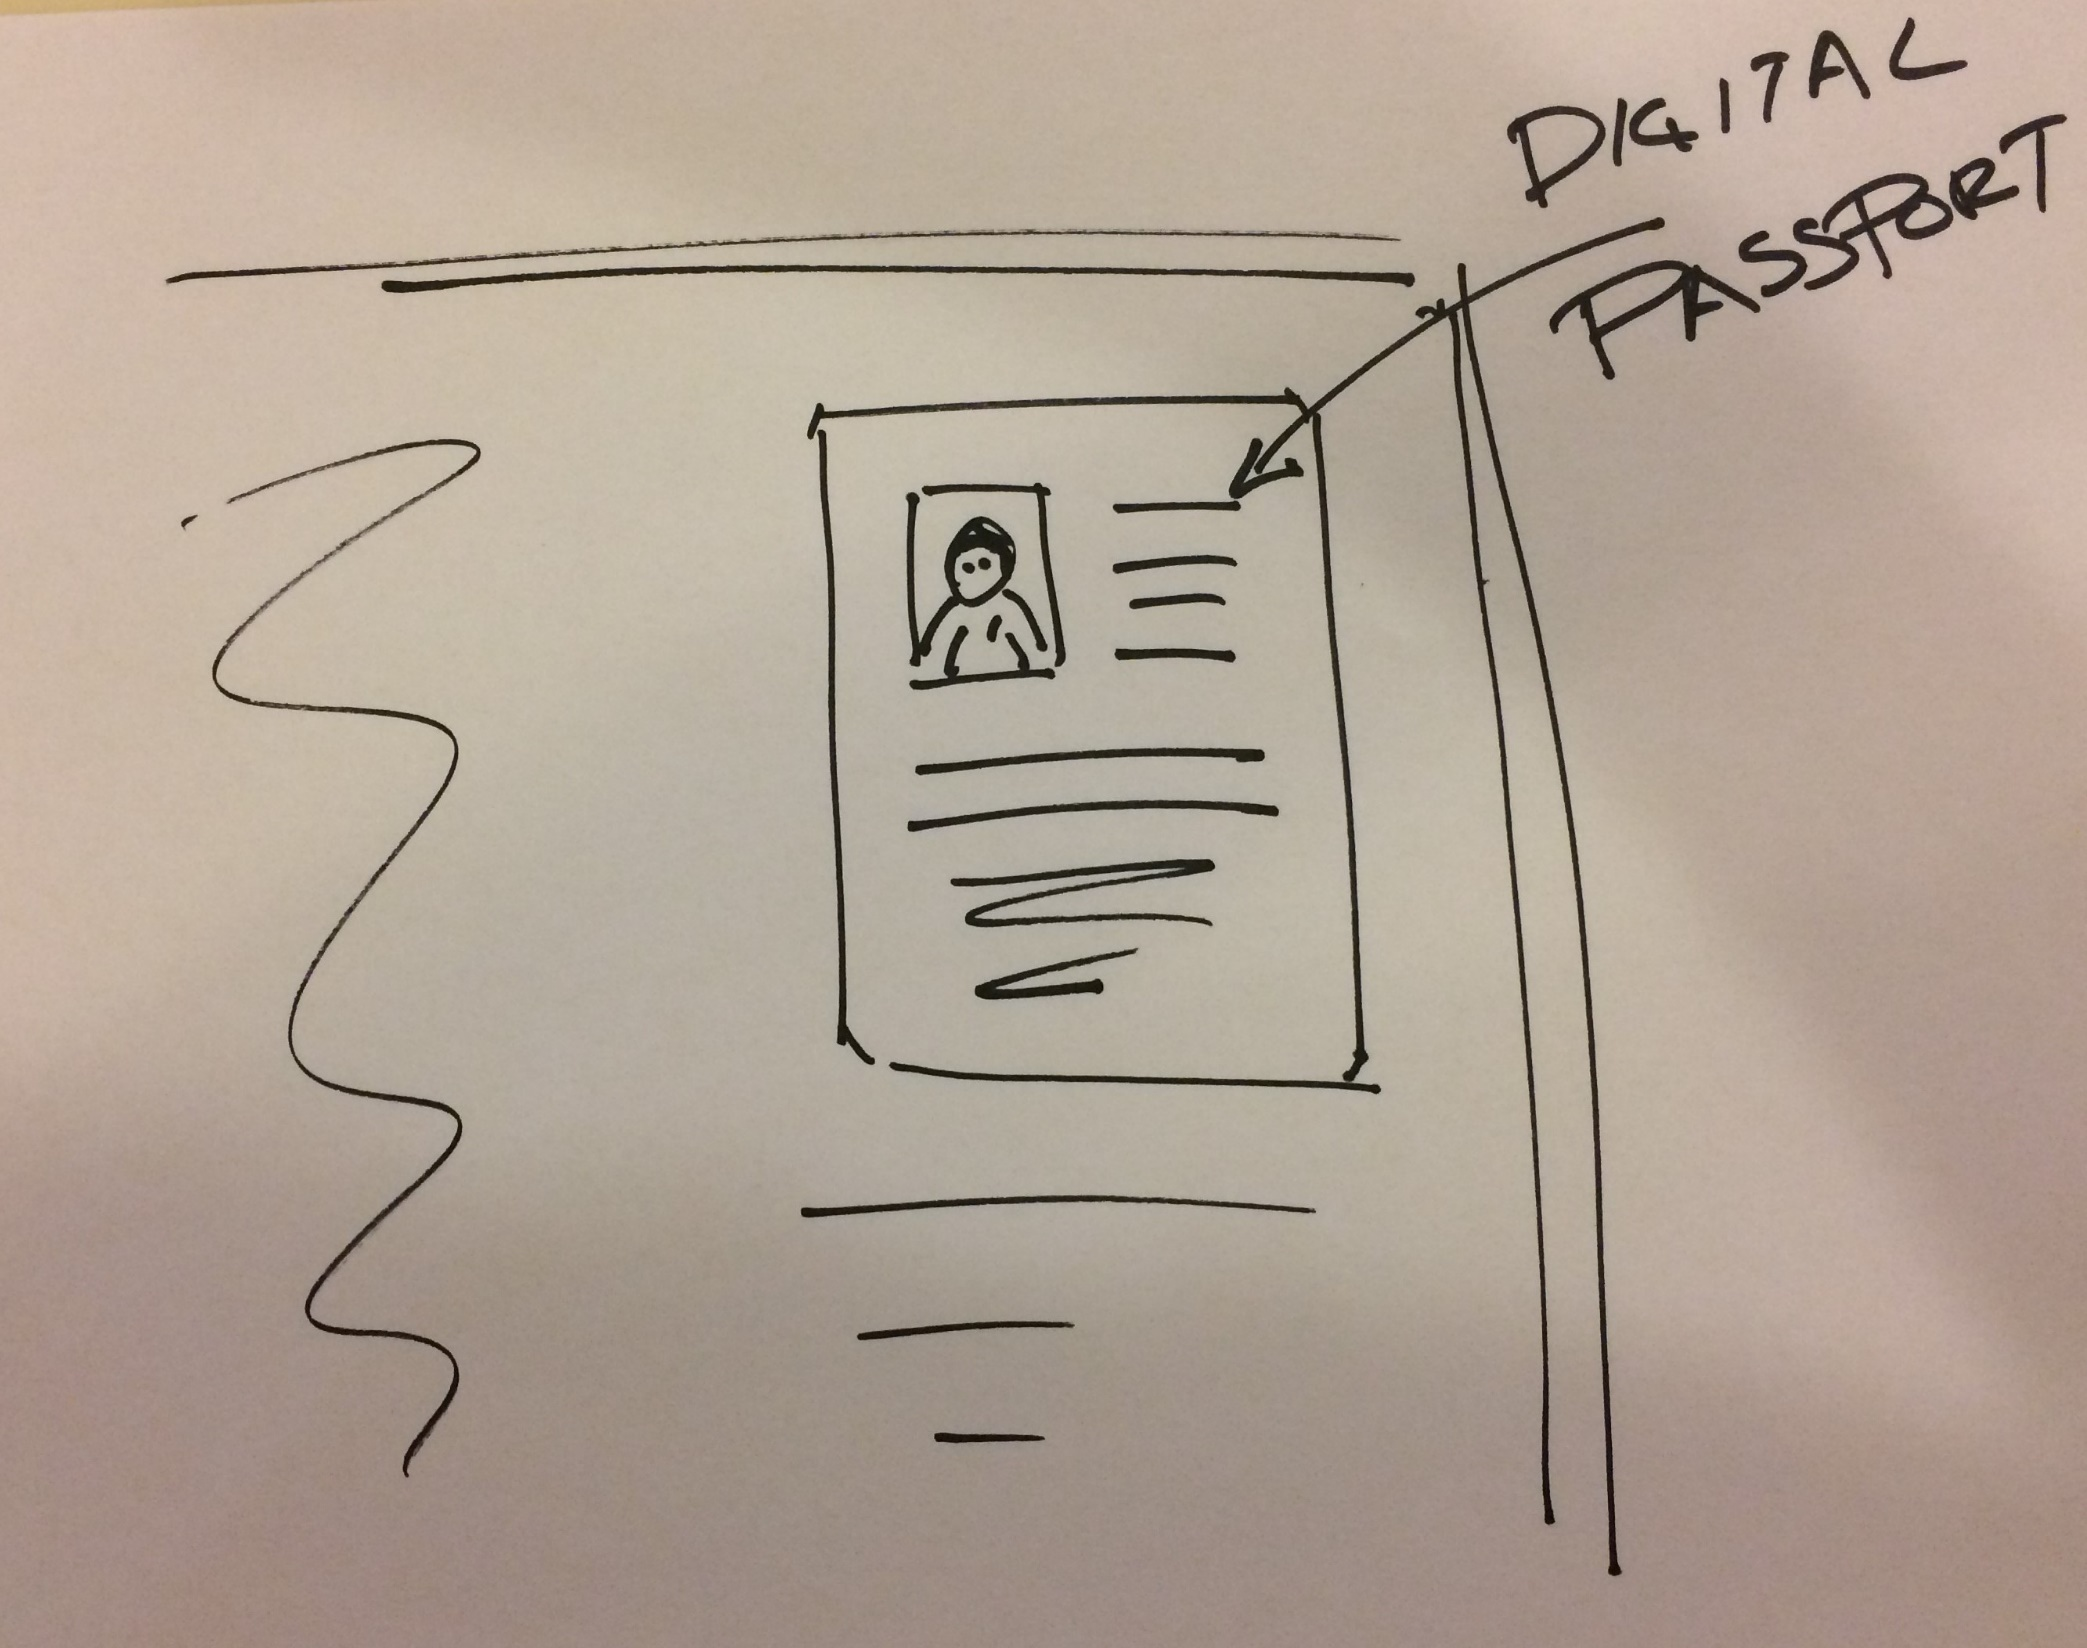 DIGITAL
PASSPORT